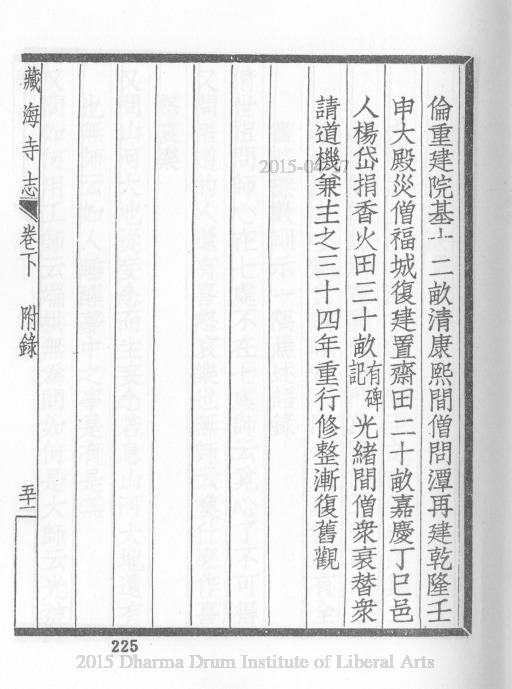 倫重建院基十二畝清康熙間僧問潭再建乾隆壬
申大殿災僧福城復建置齋田二十畝嘉慶丁巳邑
人楊岱捐香火田三十畝有碑記光緒間僧衆衰替衆
請道機兼主之三十四年重行修整漸復舊觀
藏海寺志 卷下 附錄 五二
225
2015 Dharma Drum Institute of Liberal Arts